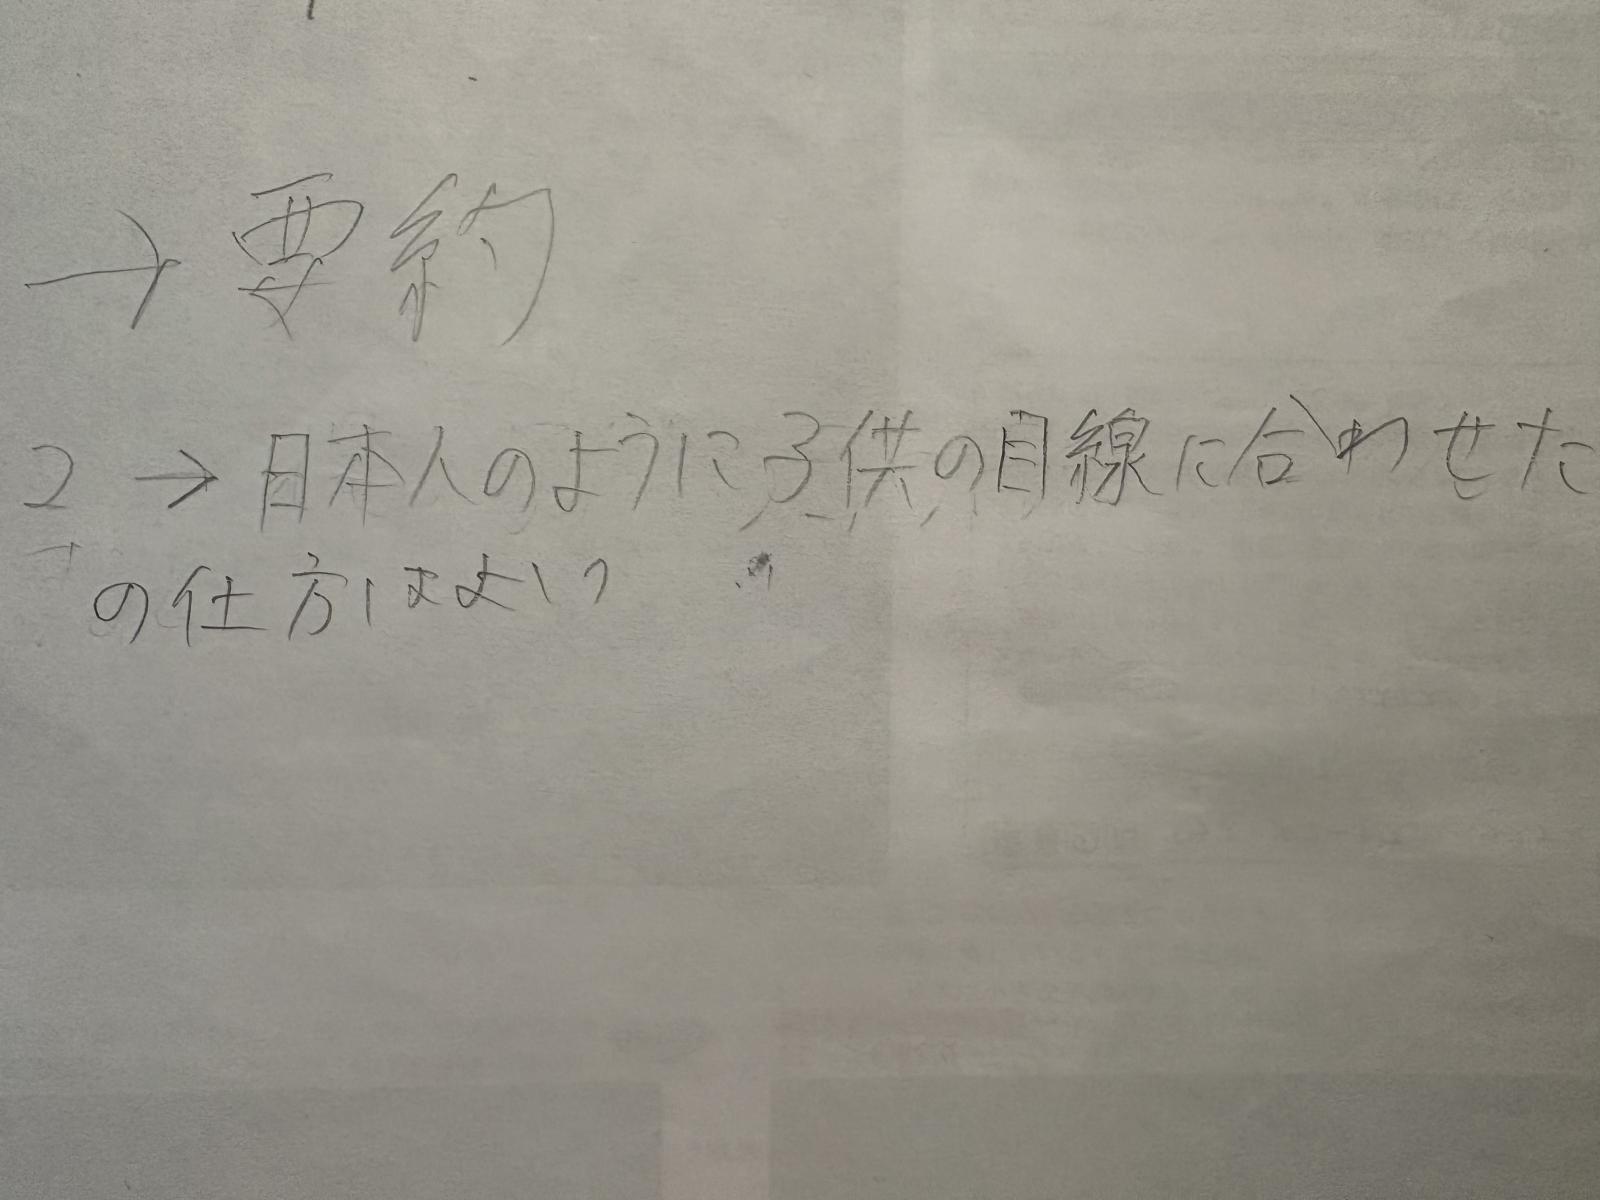 →要約
2 → 日本人のように子供の目線に合わせた
の仕方はよい